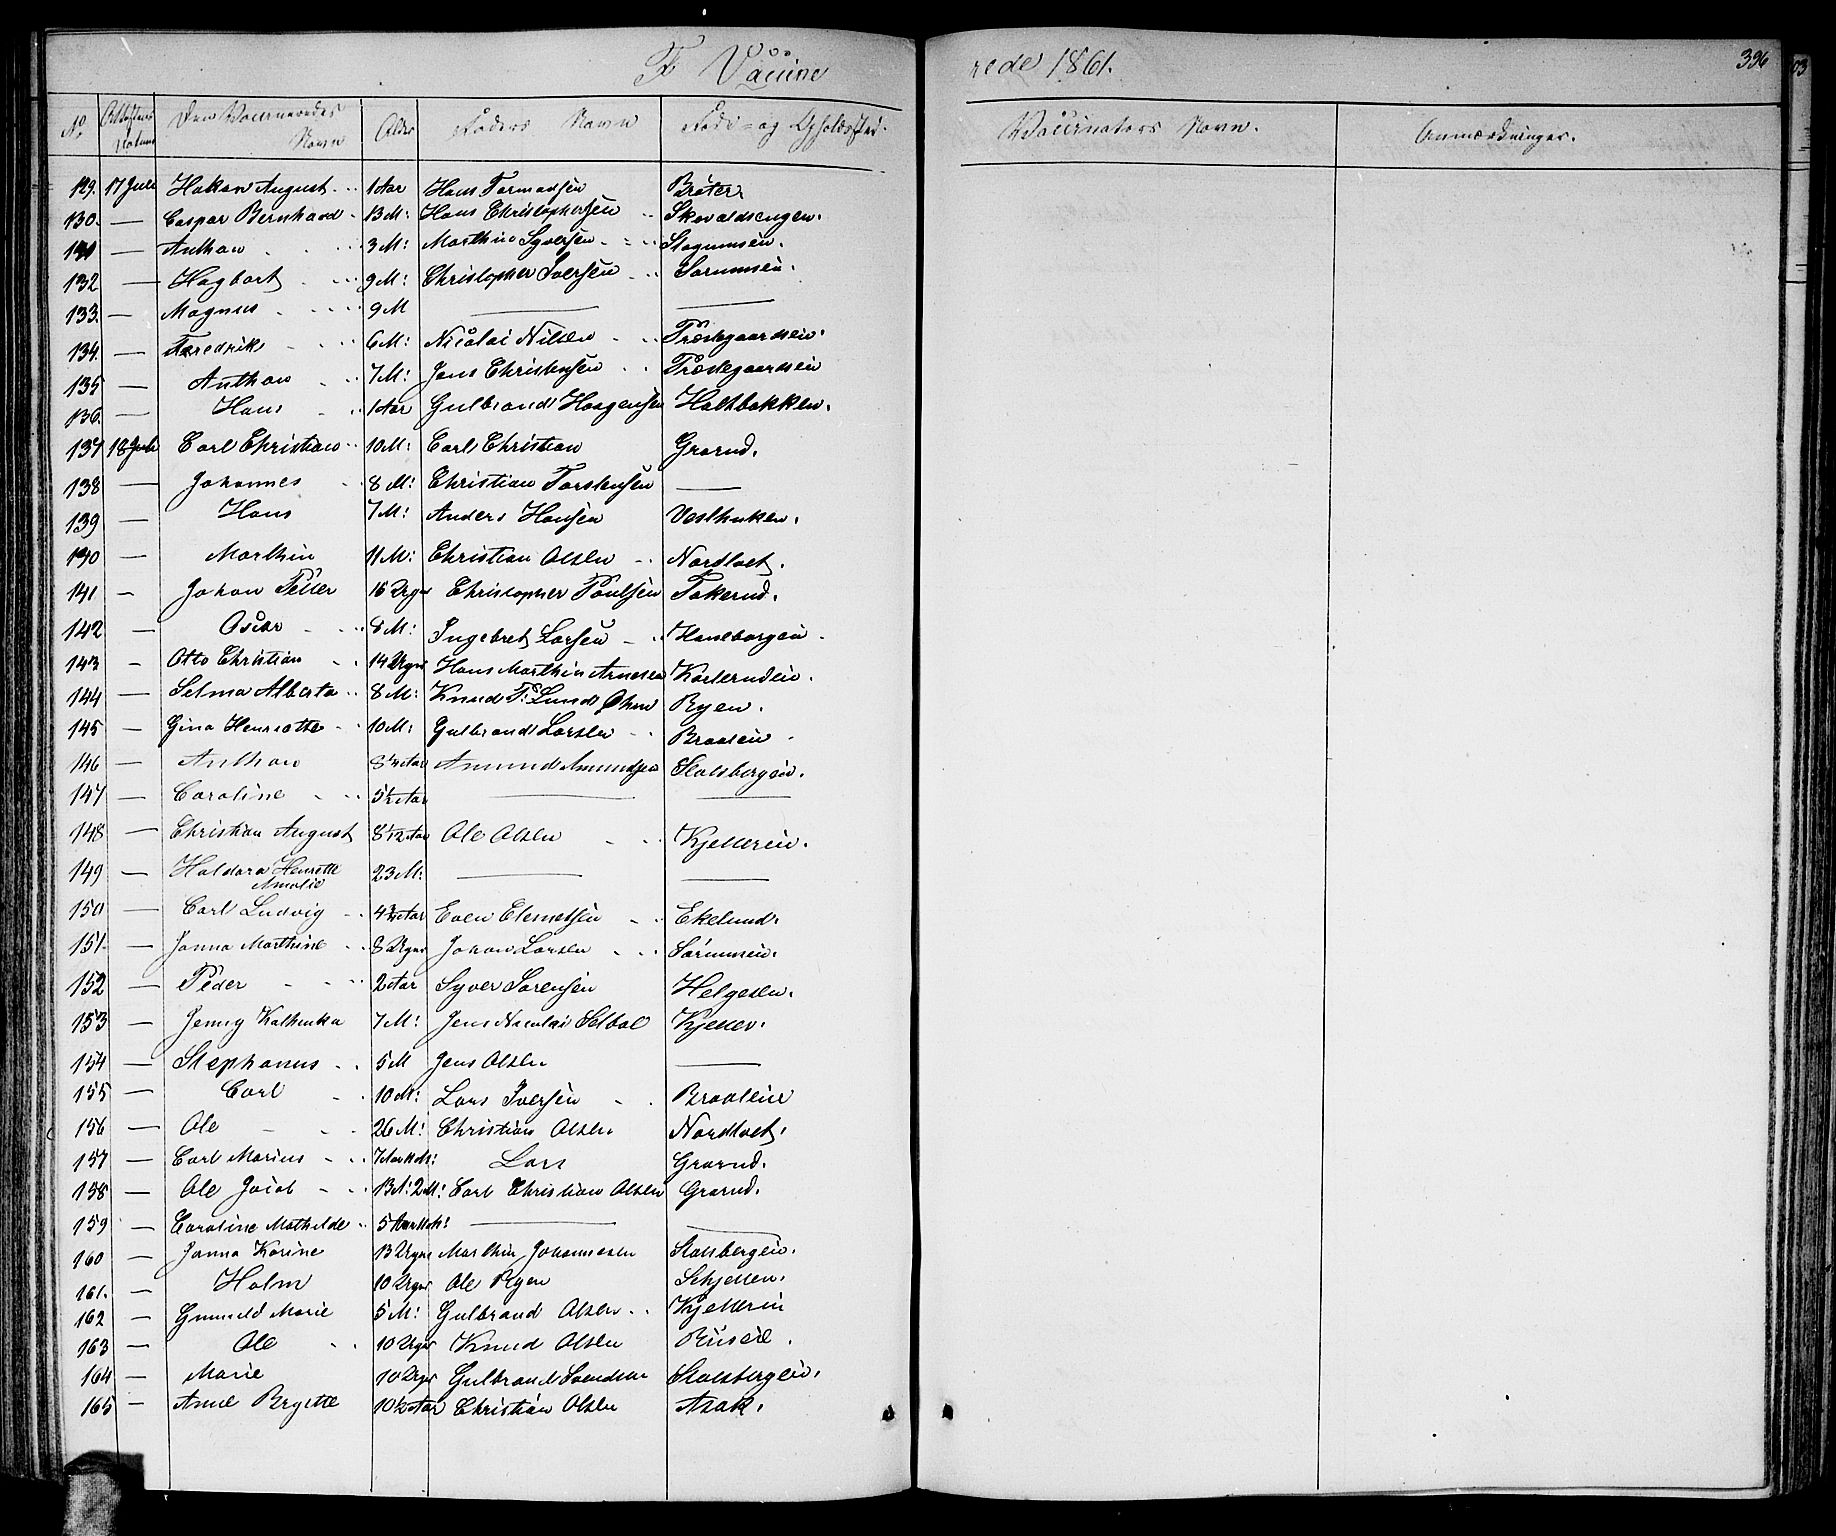 F Vaccinerede 1861. 396
No. Attestens Datum Den Vaccineredes Navn Alder Faders Navn Føde- og Opholdssted. Vaccinators Navn. Anmærkninger.
129. 17 Juli Hakon August 1 Aar Hans Tormodsen Bröter
130. — Caspar Bernhard 13 M: Hans Christophersen Skovaldsengen.
131 — Anthon 3 M: Marthin Syversen
132 — Hagbart 9 M: Christopher Iversen Sørumseie.
133. — Magnus 9 M — —
134. — Fredrik 6 M: Nicolai Nilsen Præstegaardseie.
135 — Anthon 7 M: Jens Christensen Præstegaardseie
136. — Hans 1 Aar Gulbrand Haagensen Holtbakken.
137 18 Juli Carl Christian 10 M: Carl Christian Grarud.
138 — Johannes 8 M: Christian Torstensen —
139 — Hans 7 M: Anders Hansen Vesthuken.
130 — Marthin 11 M: Christian Olsen Nordtvet.
141 — Johan Petter 16 Uger Christopher Poulsen Tokerud.
142 — Oscar 8 M: Ingebret Larsen Haneborgeie
143 — Otto Christian 14 Uger Hans Marthin Arnesen Karlerudeie.
144 — Selma Alberta 8 M: Knud P: Lund Ryen.
145 — Gina Henriette 10 M: Gulbrand Larsen Braateie
146 — Anthon 8 1/4 Aar Amund Amundsen Stalsbergeie.
147 — Caroline 5 1/2 Aar — —
148 — Christian August 8 1/12 Aar Ole Olsen Kjellereie.
149 — Haldora Henrette Amalie 23 M: — —
150 — Carl Ludvig 4 3/4 Aar Even Clemetsen Ekelund.
151. — Janna Marthine 8 Uger Johan Larsen Sørumseie.
152 — Peder 2 Aar Syver Sørensen Helgesen.
153 — Jenny Kathinka 7 M: Jens Nicolai Selboe Kjeller.
154 — Stephanus 5 M Jens Olsen —
155 — Carl 10 M: Lars Iversen Braateie
156 — Ole 26 M: Christian Olsen Nordtvet.
157 — Carl Marius 7 Aar Lars Grarud.
158 — Ole Jacob 13 A: 2 M: Carl Christian Olsen Grarud.
159 — Caroline Mathilde 5 Aar — —
160 — Janna Karine 13 Uger Marthin Johannesen Stalsbergeie.
161. — Holm 10 Uger Ole Ryen Schjetten.
162 — Gunnild Marie 5 M: Gulbrand Olsen Kjellereie
163 — Ole 10 Uger Knud Olsen Riiseie.
164 — Marie 10 Uger Gulbrand Svendsen Stalsbergeie.
165 — Anne Birgitte 10 1/2 Aar Christian Olsen Asak.